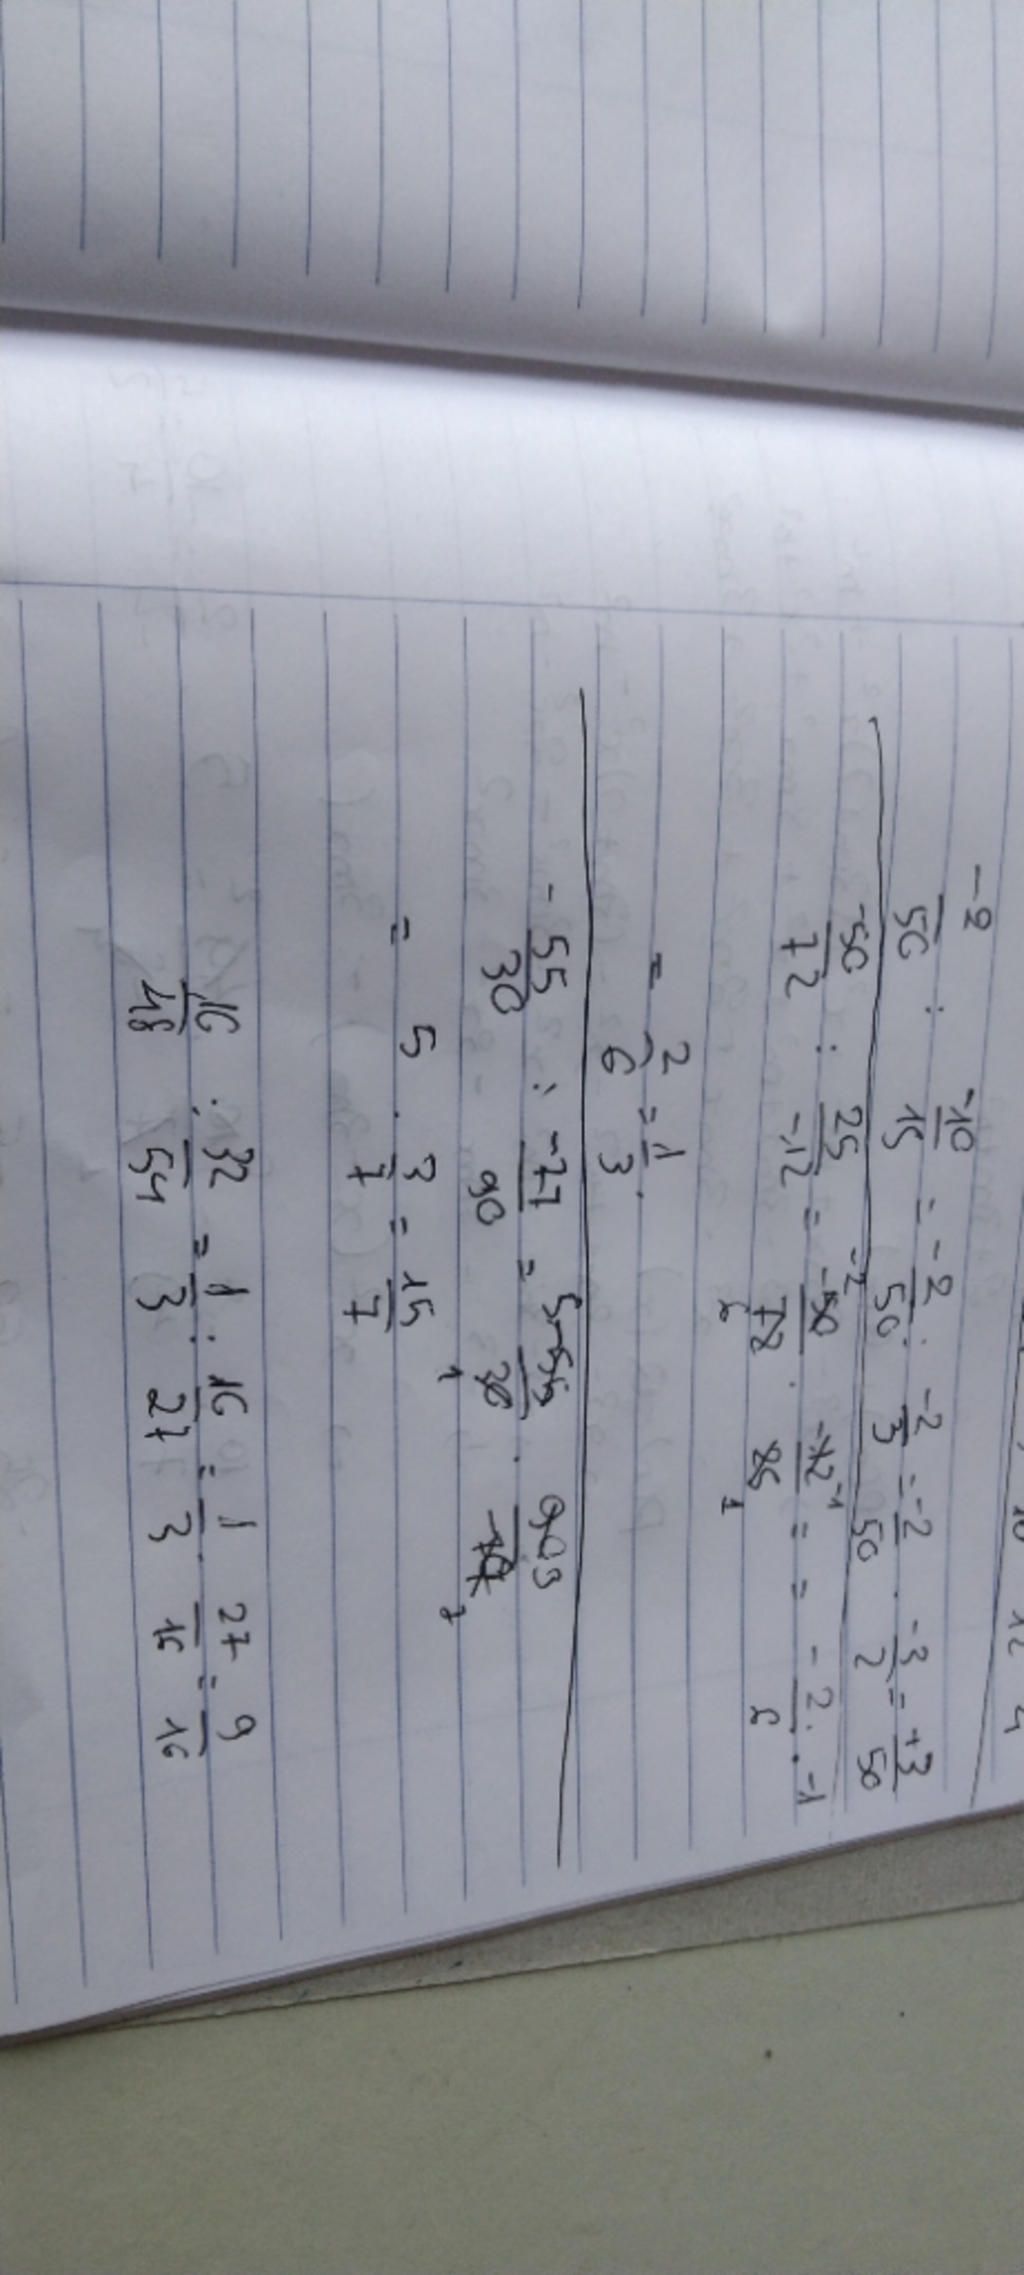 10 12 4
-2/50 : -10/15 = -2/50 : -2/3 = -2/50 · -3/2 = +3/50
-50/72 : 25/-12 = -50/72 · -12/25 = = -2/6 · -1
= 2/6 = 1/3
-55/30 : -77/90 = -55/30 · 90/-77
= 5 · 3/7 = 15/7
16/48 : 32/54 = 1/3 : 16/27 = 1/3 · 27/16 = 9/16